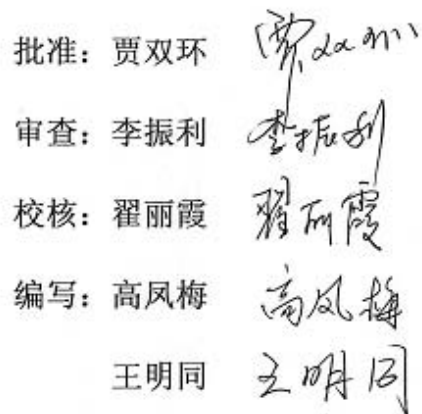 批准：贾双环 贾双环
审查：李振利 李振利
校核：翟丽霞 翟丽霞
编写：高凤梅 高凤梅
王明同 王明同